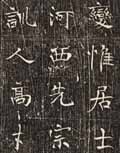 變惟居士
河西先宗
訓人高才